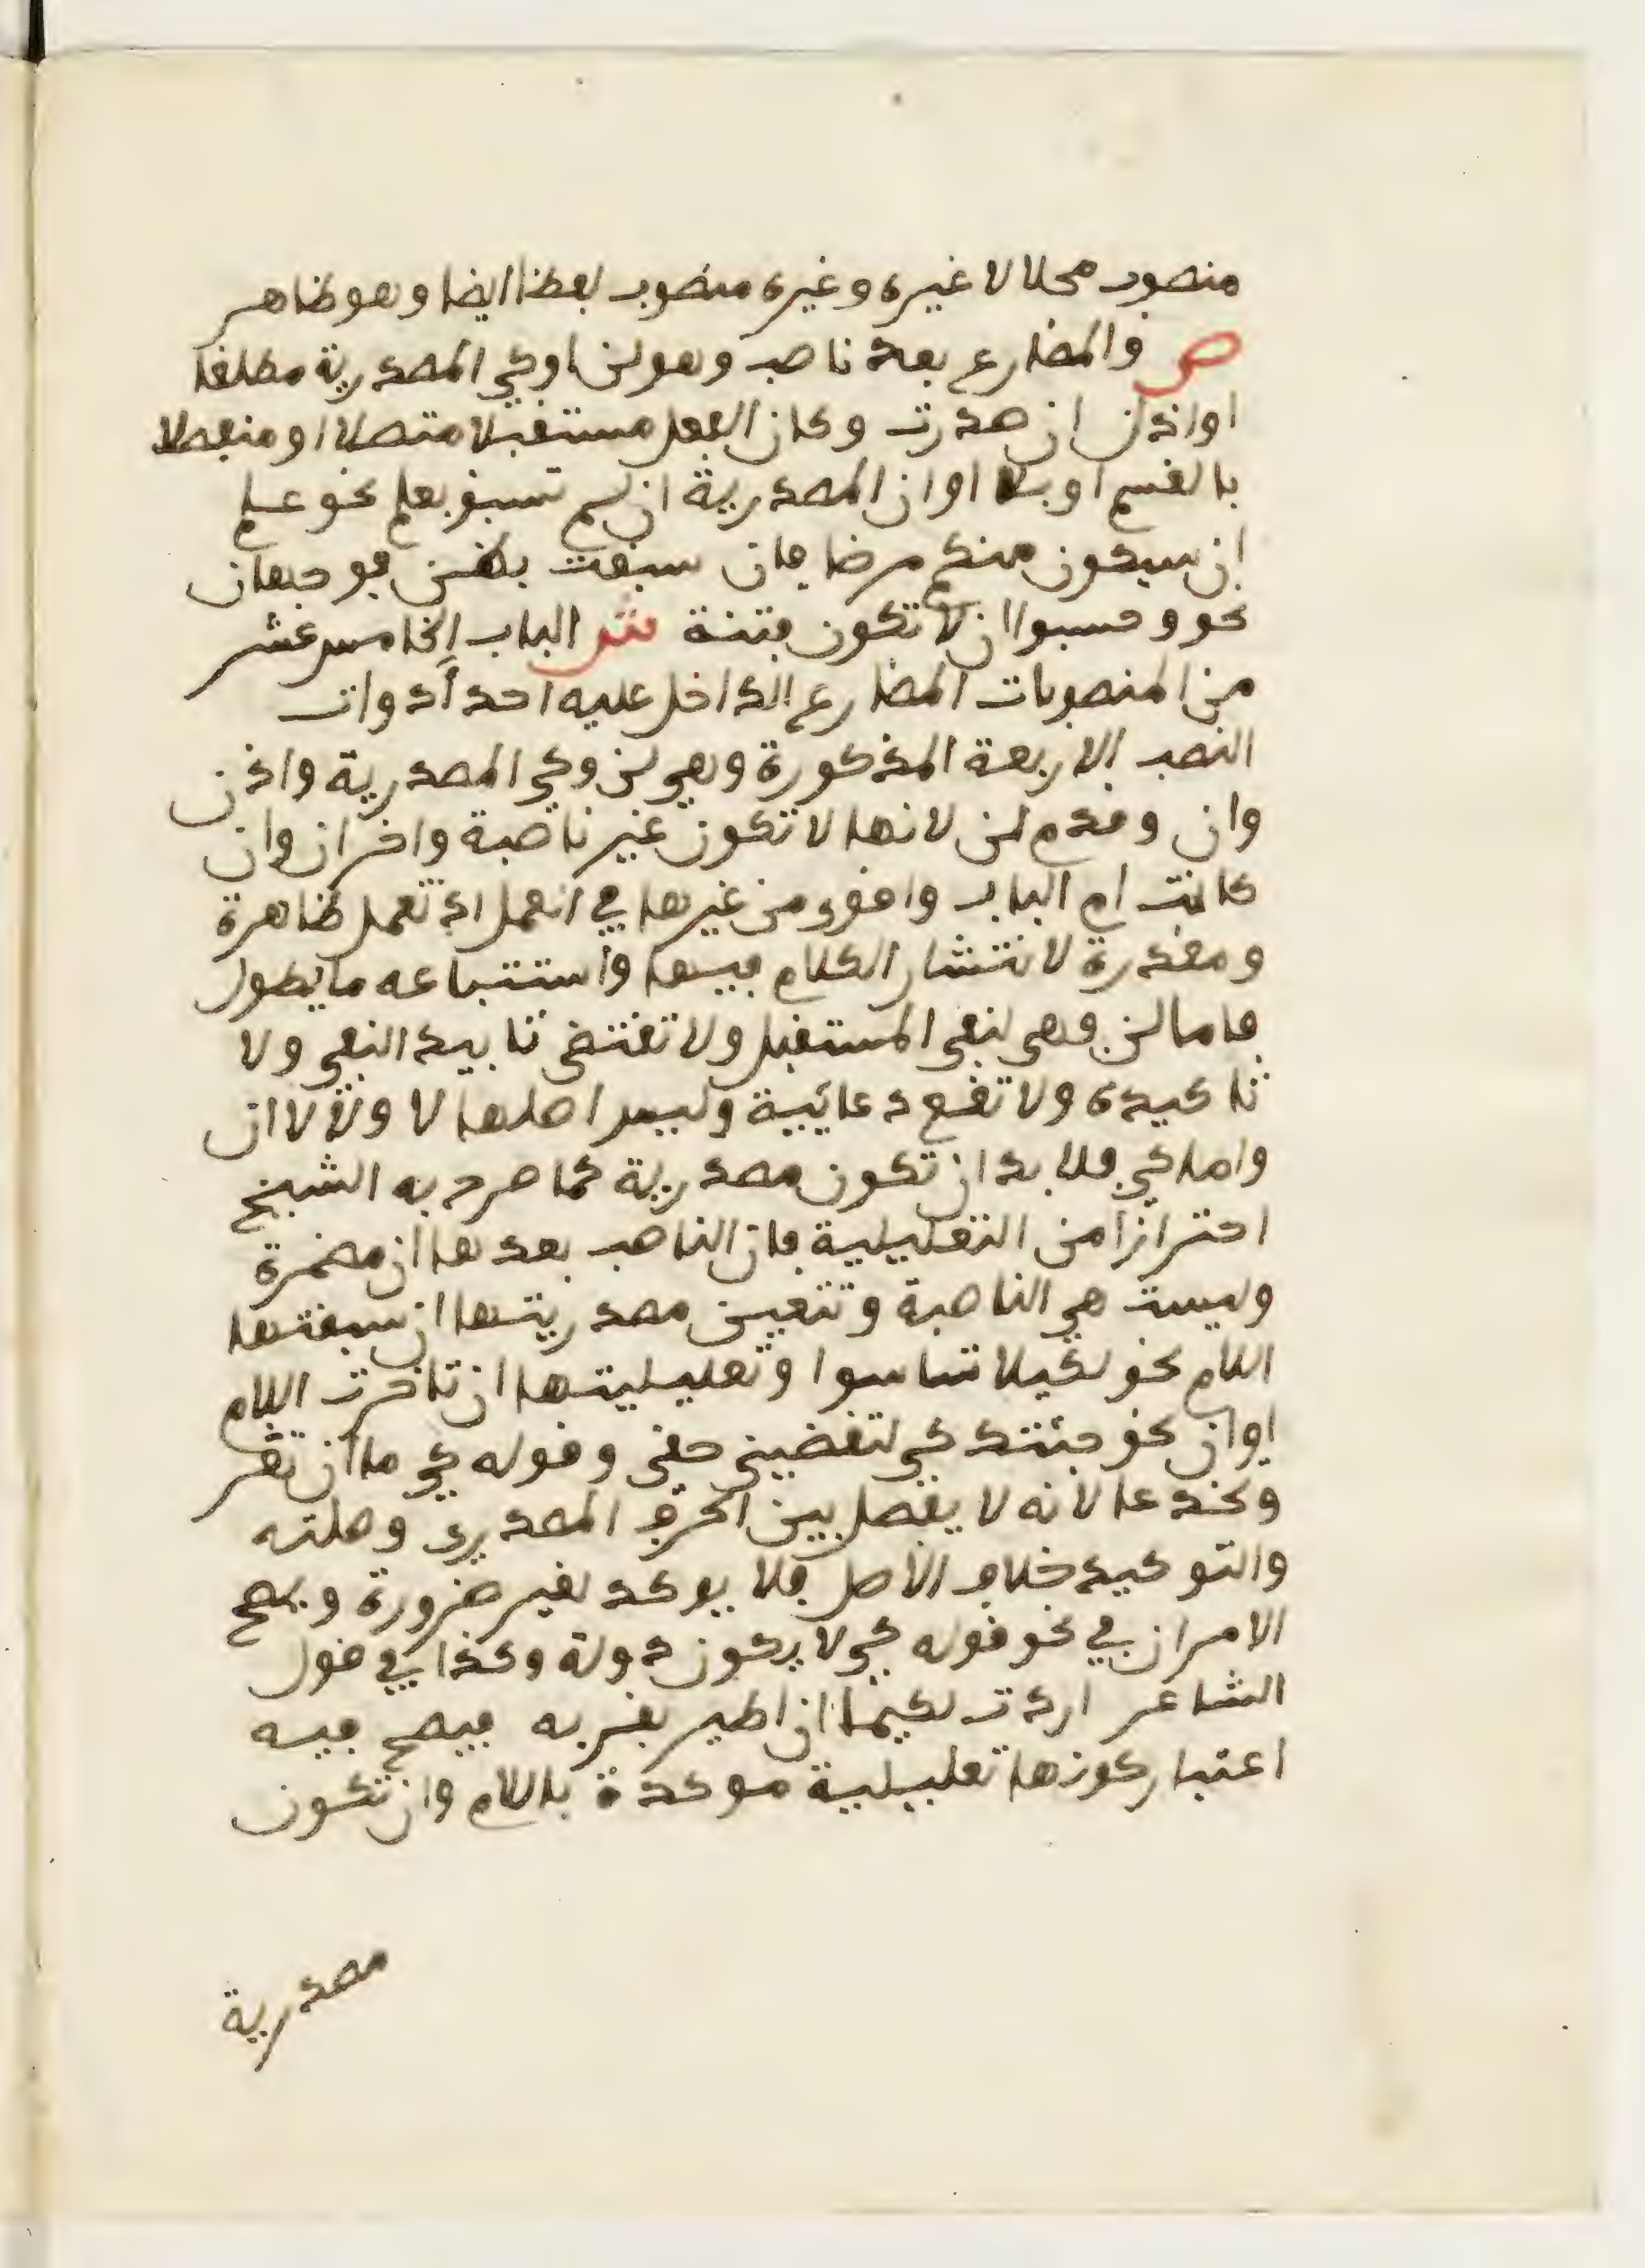 منصوب محلا لا غيره وغيره منصوب لفظا ايضا وهو ظاهر
ص والمضارع بعد ناصب وهو لن او كي المصدرية مطلقا
او اذن ان صدرت وكان الفعل مستقبلا متصلا او منفصلا
بالقسم او بلا او ان المصدرية ان لم تسبق بعلم نحو علم
ان سيكون منكم مرضا فان سبقت بظن فوجهان
نحو وحسبوا ان لا تكون فتنة ش الباب الخامس عشر
من المنصوبات المضارع الداخل عليه احد أدوات
النصب الاربعة المذكورة وهي لن وكي المصدرية واذن
وان وقدم لن لانها لا تكون غير ناصبة واخر ان وان
كانت ام الباب واقوى من غيرها في العمل اذ تعمل ظاهرة
ومقدرة لانتشار الكلام فيها واستتباعه ما يطول
فاما لن فهي لنفي المستقبل ولا تقتضي تابيد النفي ولا
تاكيده ولا تقع دعائية وليس اصلها لا ولا لا ان
واما كي فلا بد ان تكون مصدرية كما صرح به الشيخ
احترازا من التعليلية فان الناصب بعدها ان مضمرة
وليست هي الناصبة وتتعين مصدريتها ان سبقتها
اللام نحو لكيلا تاسوا وتعليليتها ان تاخرت اللام
او ان نحو جئتك كي لتقضيني حقي وقوله كي ما ان تغر
وتخدعا لانه لا يفصل بين الحرف المصدري وصلته
والتوكيد خلاف الاصل فلا يوكد لغير ضرورة ويصح
الامران في نحو قوله كي لا يكون دولة وكذا في قول
الشاعر اردت لكيما ان اطير بقربه فيصح فيه
اعتبار كونها تعليلية موكدة باللام وان تكون
مصدرية